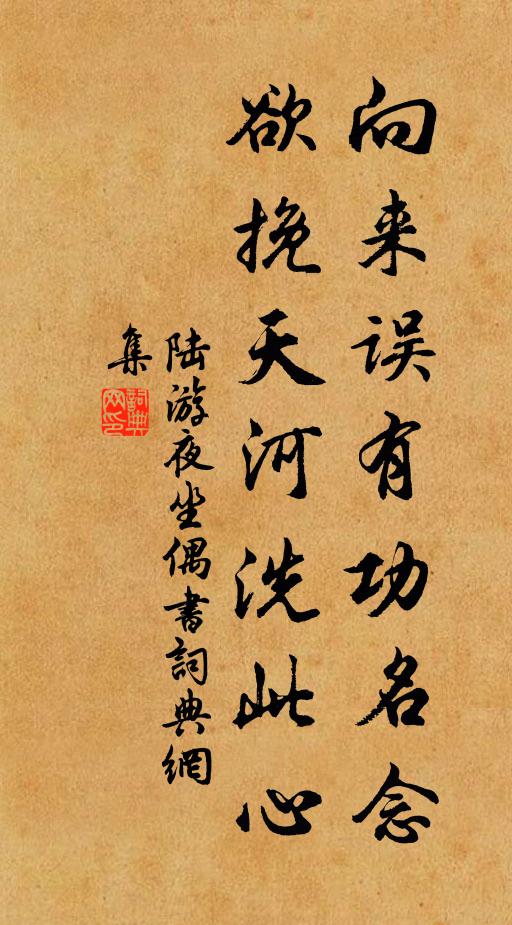 向来误有功名念
欲挽天河洗此心
陆游夜坐偶書詞典網
集
詞典
网印